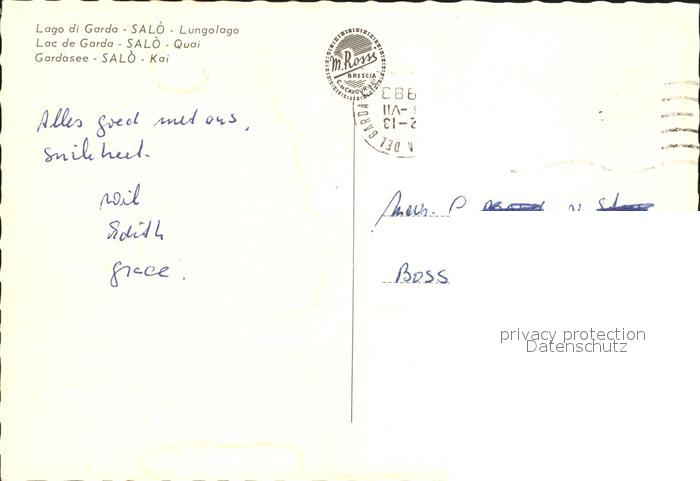 Lago di Garda - SALÒ - Lungolago
Lac de Garda - SALÒ - Quai
Gardasee - SALÒ - Kai
M. Rossi
BRESCIA
C. CAVOUR
DEL GARDA
Alles goed met ons,
snikheet.
Wil
Edith
Grace.
Mevr. P
BOSS
privacy protection
Datenschutz